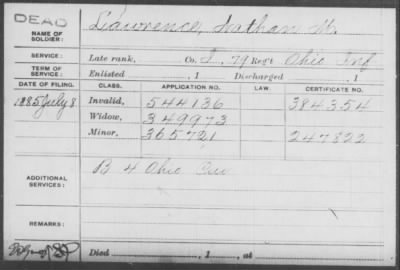 DEAD
NAME OF SOLDIER: Lawrence, Nathan M.
SERVICE: Late rank, Co. I, 79 Reg't Ohio Inf
TERM OF SERVICE: Enlisted , 1 Discharged , 1
DATE OF FILING. CLASS. APPLICATION NO. LAW. CERTIFICATE NO.
1885 July 8 Invalid, 544136 384354
Widow, 349973
Minor, 365721 247822
ADDITIONAL SERVICES: B 4 Ohio Cav
REMARKS:
Died , 1 , at